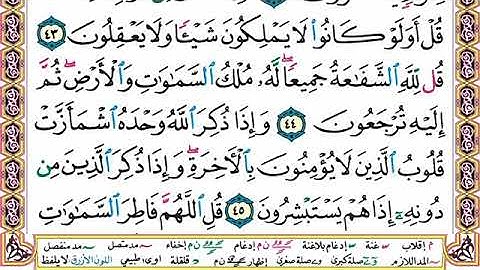 قُلْ أَوَلَوْ كَانُوا۟ لَا يَمْلِكُونَ شَيْـًٔا وَلَا يَعْقِلُونَ ٤٣
قُل لِّلَّهِ ٱلشَّفَـٰعَةُ جَمِيعًا ۖ لَّهُۥ مُلْكُ ٱلسَّمَـٰوَٰتِ وَٱلْأَرْضِ ۖ ثُمَّ
إِلَيْهِ تُرْجَعُونَ ٤٤ وَإِذَا ذُكِرَ ٱللَّهُ وَحْدَهُ ٱشْمَأَزَّتْ
قُلُوبُ ٱلَّذِينَ لَا يُؤْمِنُونَ بِٱلْـَٔاخِرَةِ ۖ وَإِذَا ذُكِرَ ٱلَّذِينَ مِن
دُونِهِۦٓ إِذَا هُمْ يَسْتَبْشِرُونَ ٤٥ قُلِ ٱللَّهُمَّ فَاطِرَ ٱلسَّمَـٰوَٰتِ
م إقلاب غنة إدغام بلاغنة إدغام إخفاء مد متصل مد منفصل
المد اللازم صلة كبرى صلة صغرى إظهار قلقلة اوى طبيعي اللون الأزرق لا يلفظ